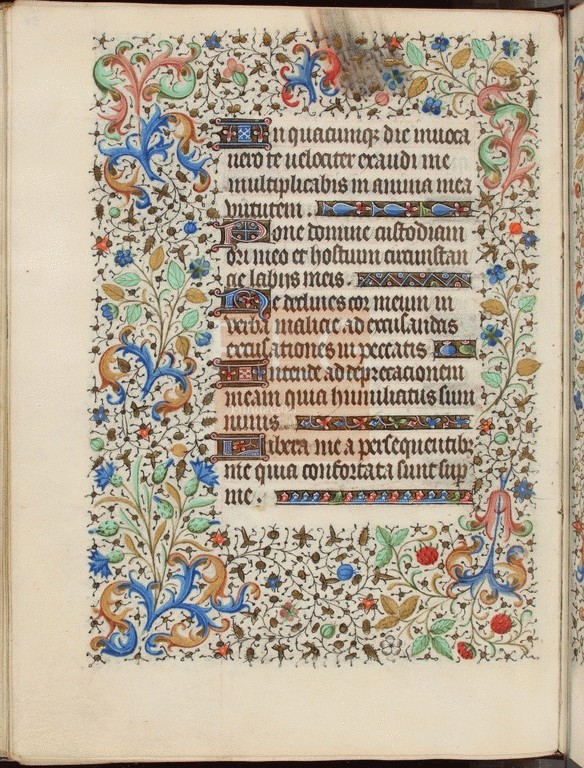 In quacumq; die inuoca
uero te uelociter exaudi me
multiplicabis in anima mea
uirtutem.
Pone domine custodiam
ori meo et hostium circunstan
cie labijs meis.
Ne declines cor meum in
verba malicie ad excusandas
excusationes in peccatis
Intende ad deprecacionem
meam quia humiliatus sum
nimis.
Libera me a persequentibz
me quia confortati sunt sup
me.